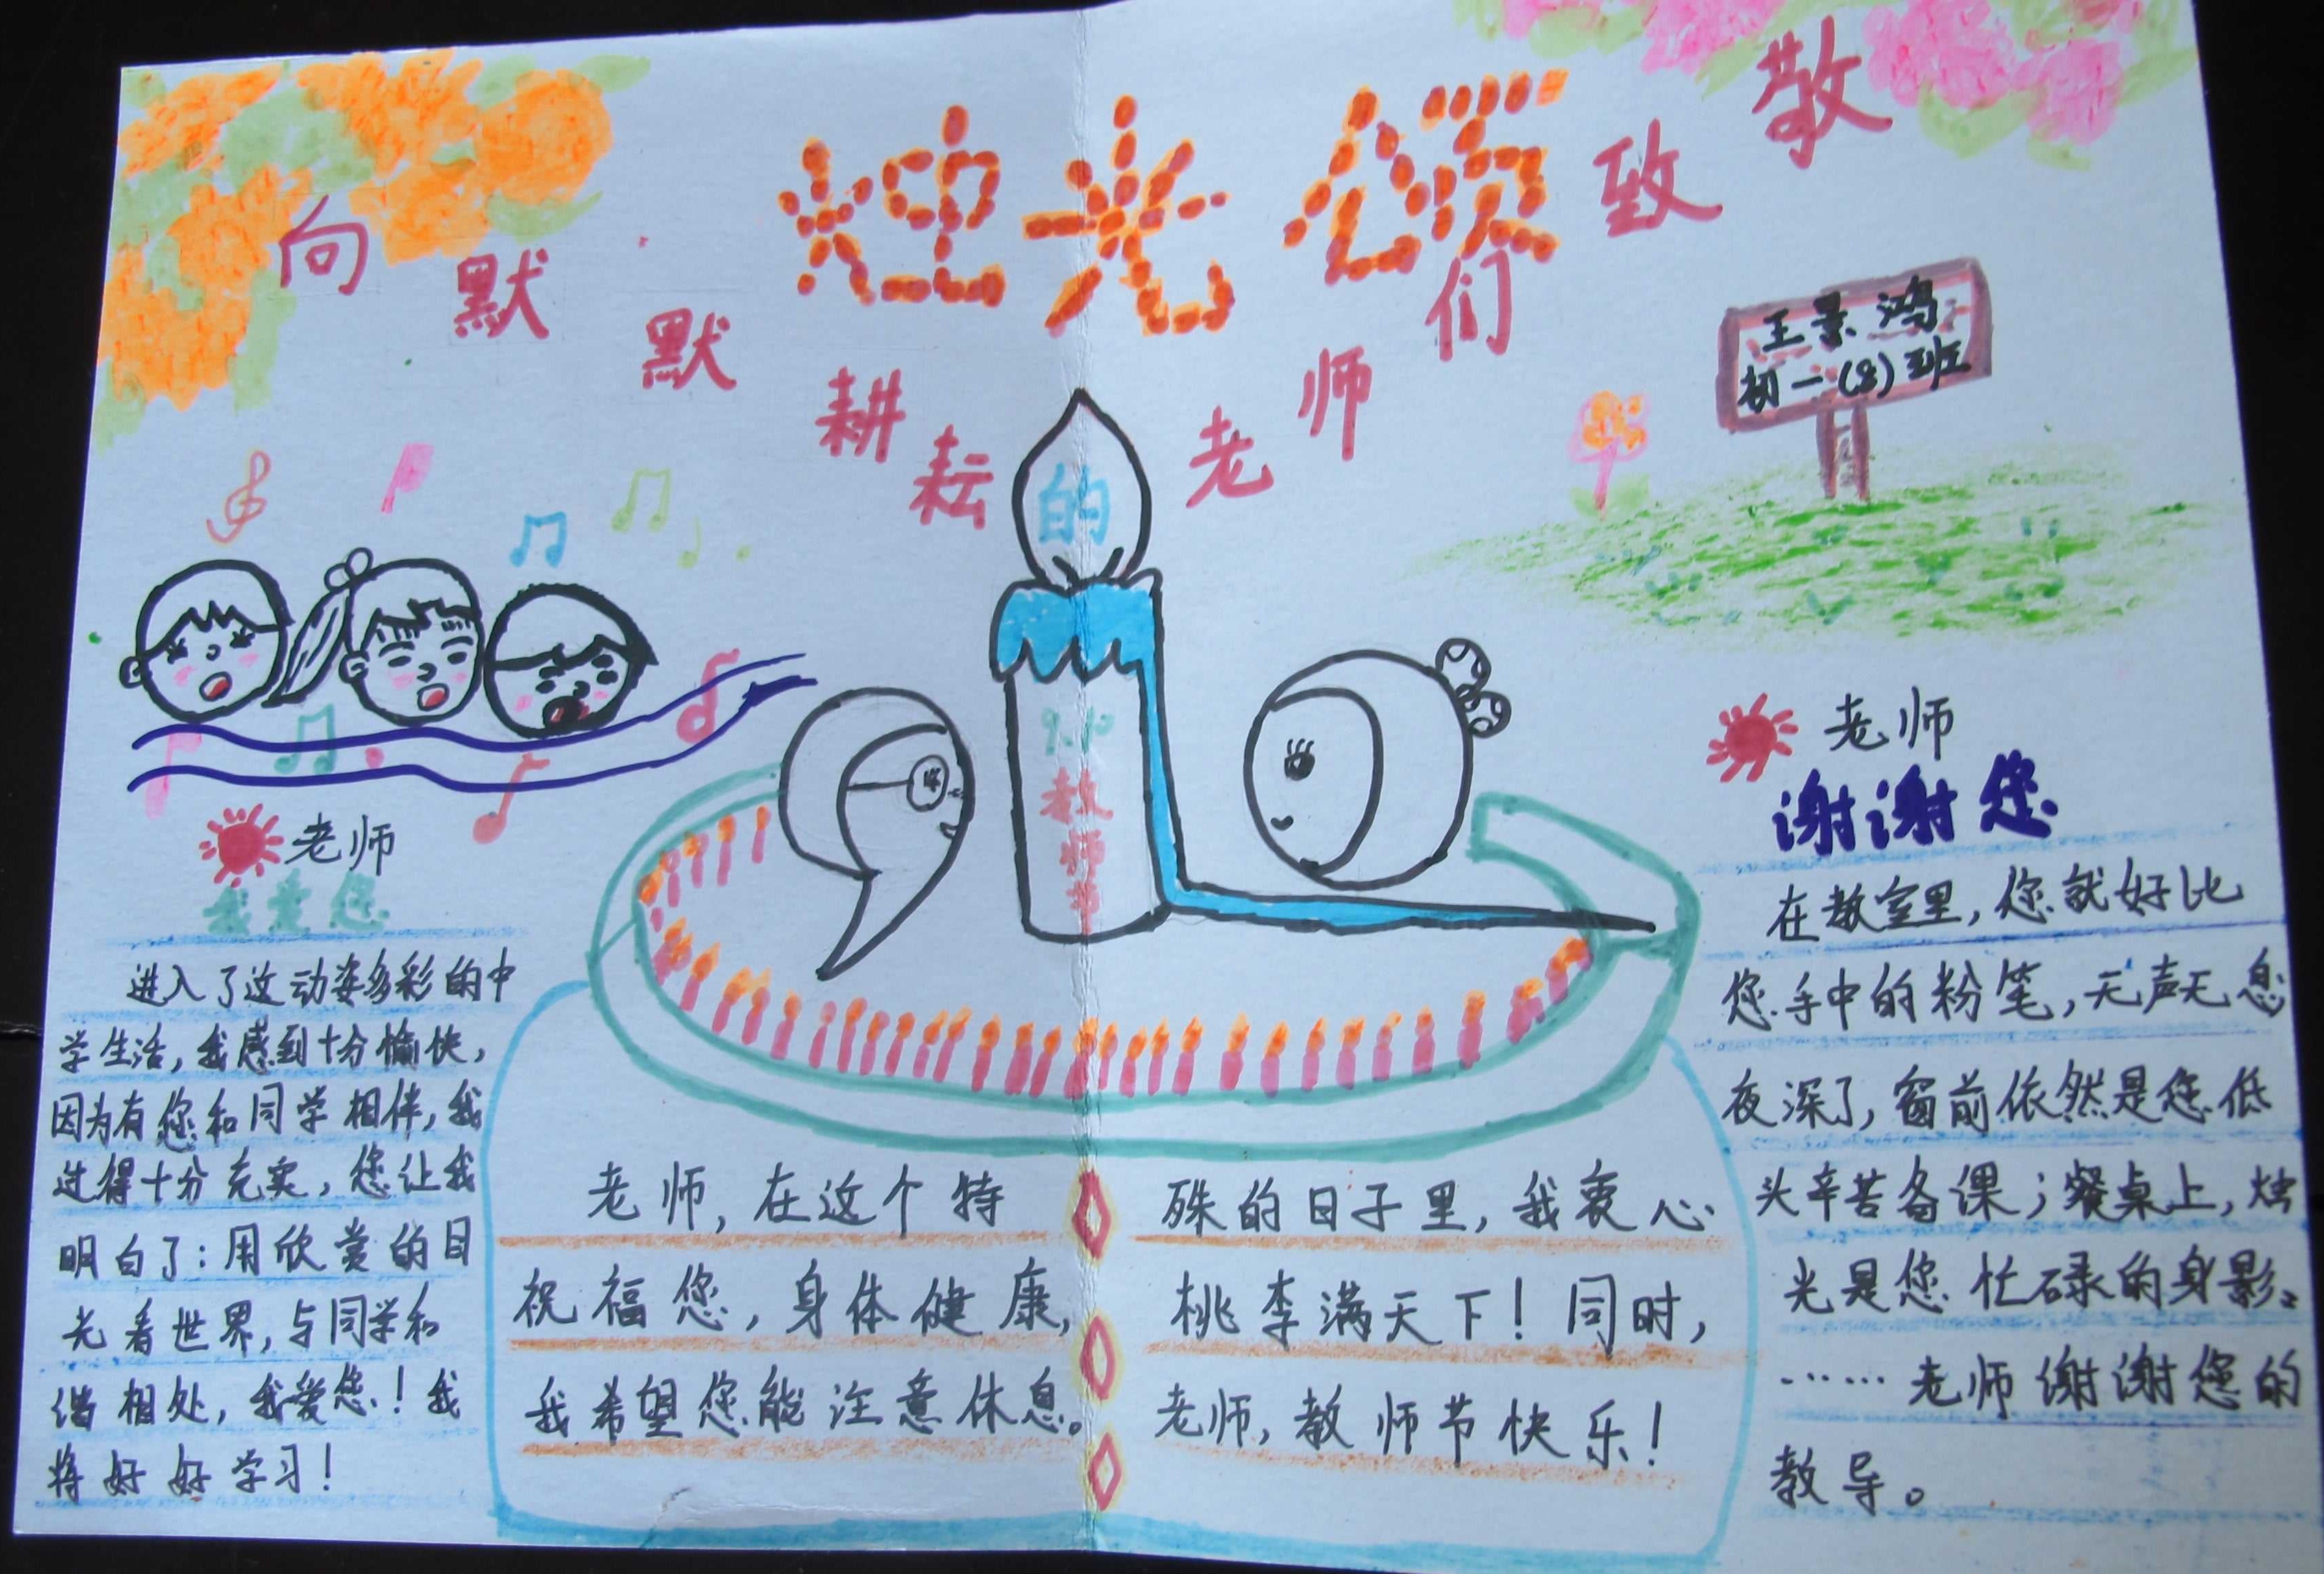 烛光颂
向默默耕耘的老师们致敬
王景鸿
初一(8)班
9.10
教师节
老师
我爱您
进入了这动姿多彩的中
学生活，我感到十分愉快，
因为有您和同学相伴，我
过得十分充实，您让我
明白了：用欣赏的目
光看世界，与同学和
谐相处，我爱您！我
将好好学习！
老师，在这个特
殊的日子里，我衷心
祝福您，身体健康，
桃李满天下！同时，
我希望您能注意休息。
老师，教师节快乐！
老师
谢谢您
在教室里，您就好比
您手中的粉笔，无声无息
夜深了，窗前依然是您低
头辛苦备课；餐桌上，烛
光是您忙碌的身影。
……老师谢谢您的
教导。